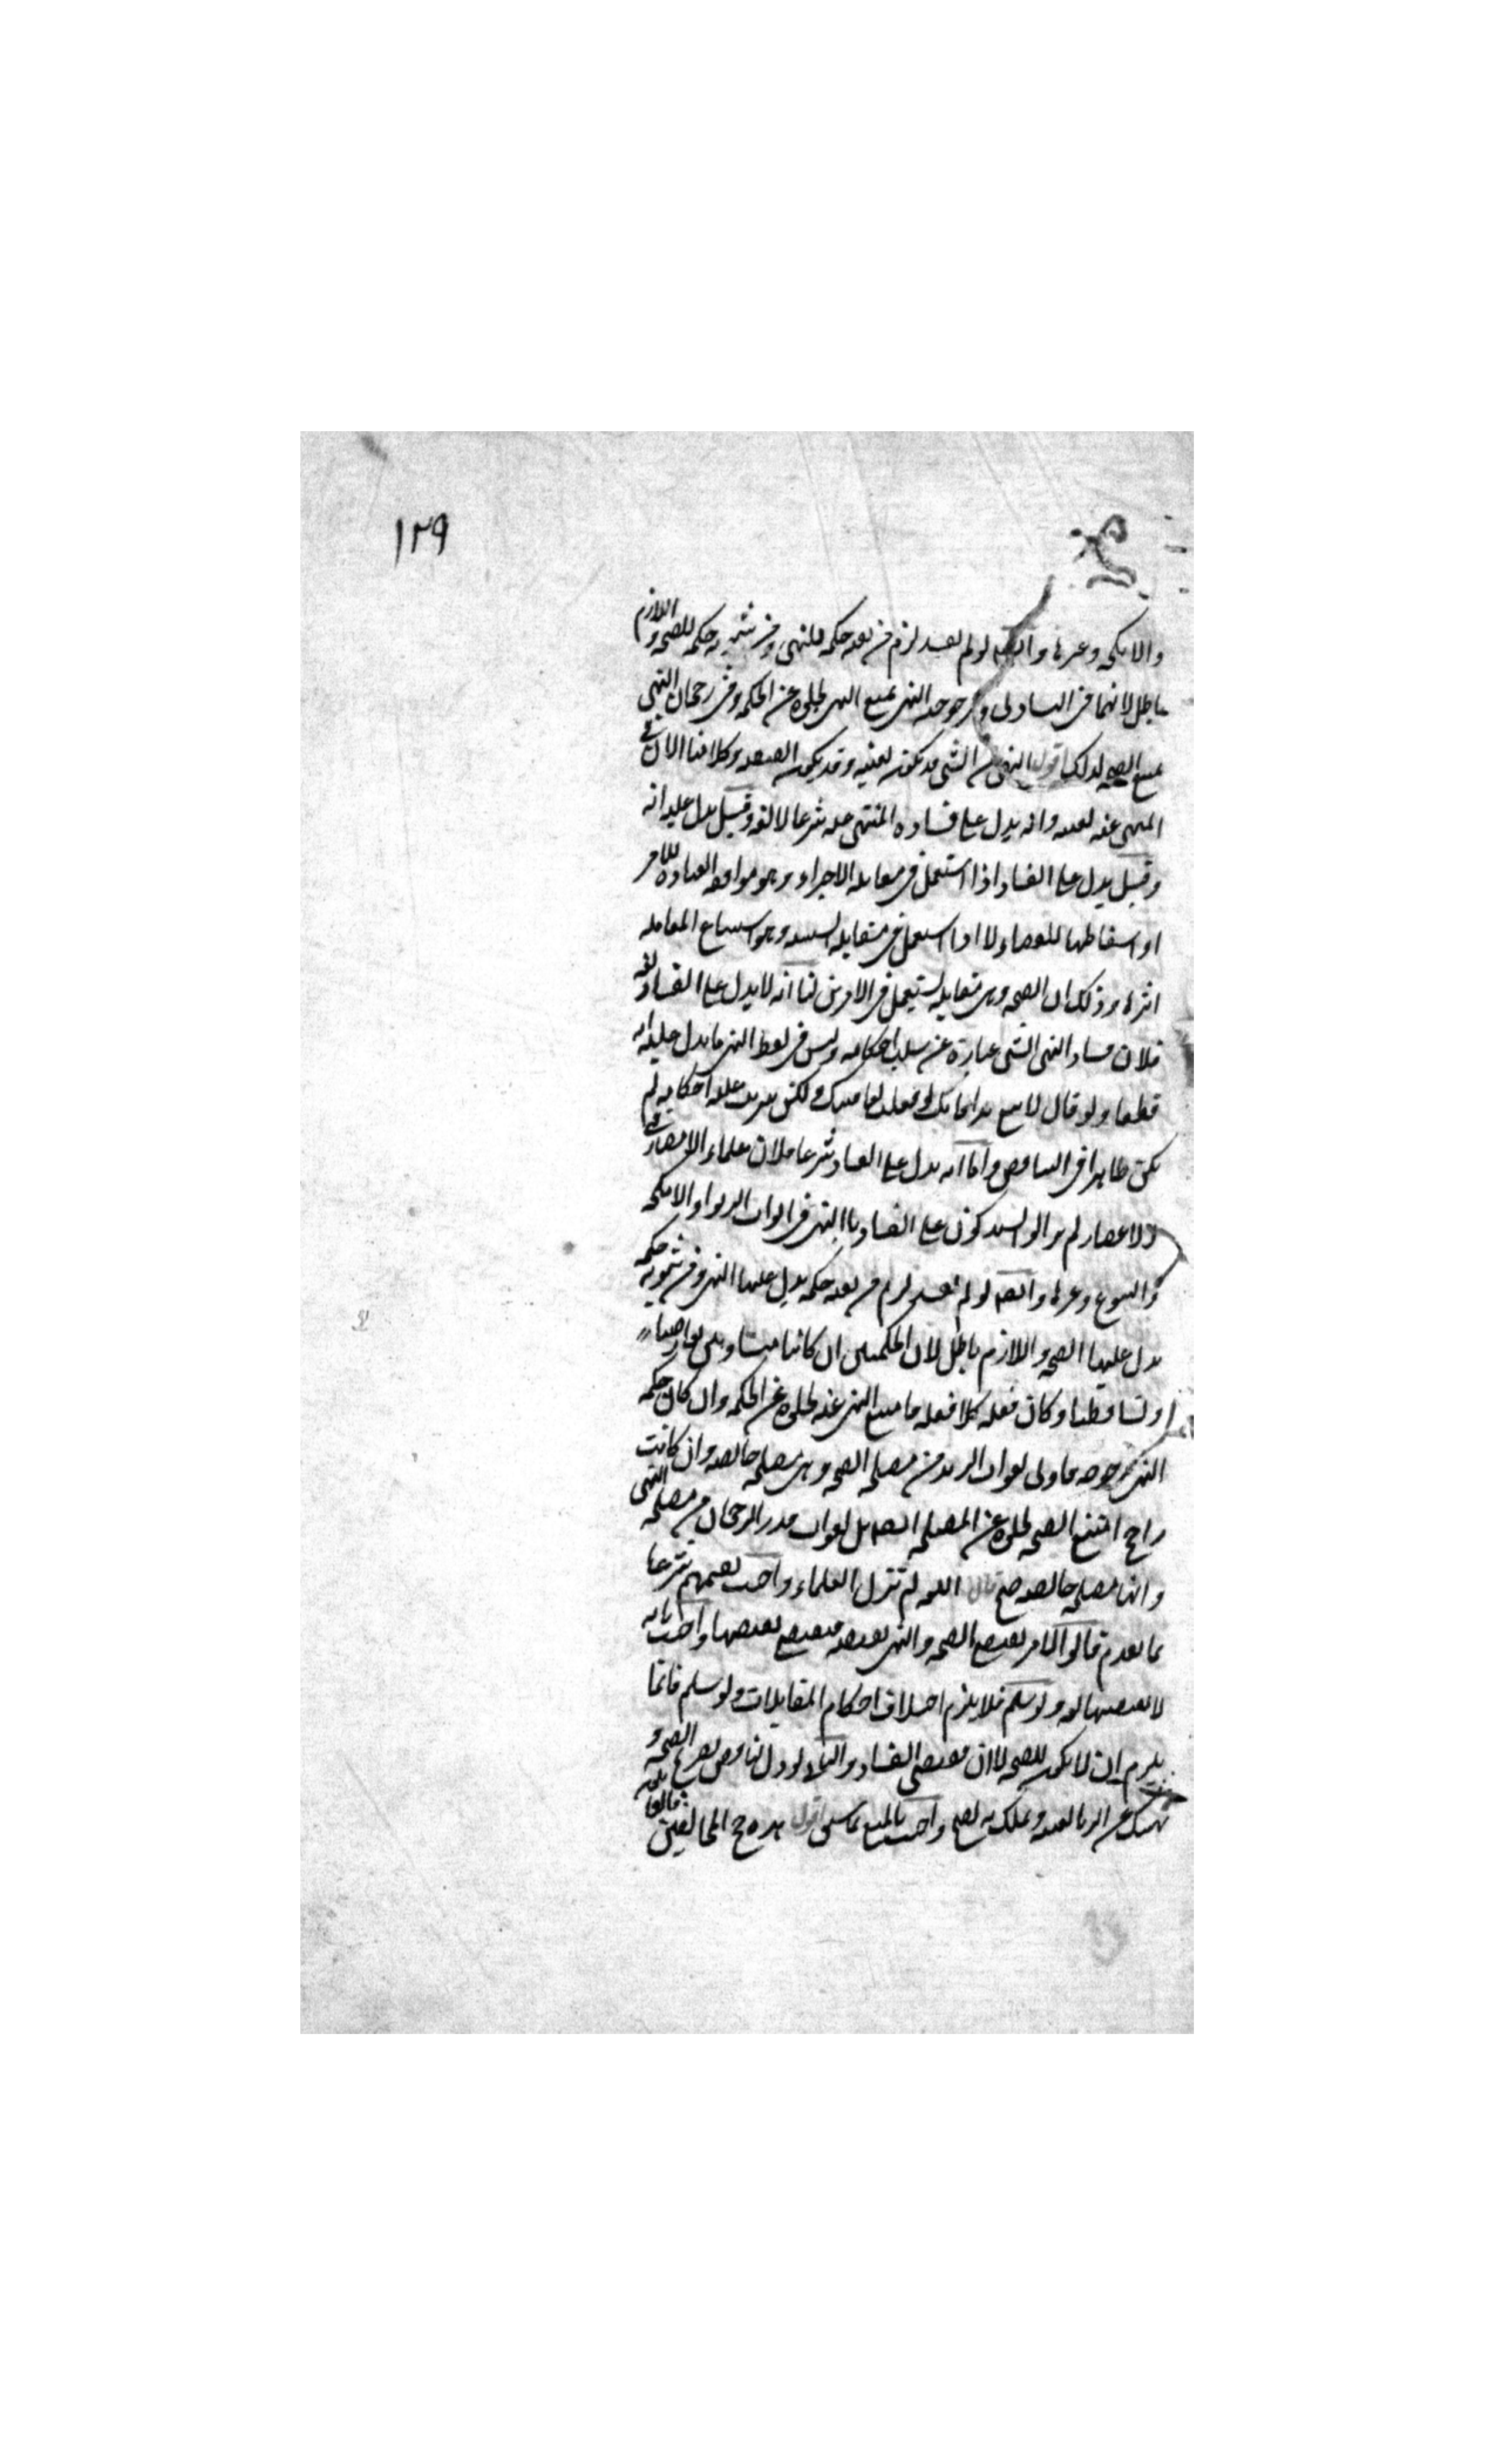 ١٢٩
والانكحه وغيرها وايضا لو لم يفسد لزم من نفيه حكمه للنهى ومن ثبوته حكمه للصحه واللازم
باطل لانهما فى التساوى ومرجوحيه النهى يمتنع النهى لخلوه عن الحكمه وفى رجحان النهى
يمتنع الصحه لذلك اقول النهى عن الشى قد يكون لعينه وقد يكون لصفته وكلامنا الان فى
المنهى عنه لعينه وانه يدل على فساد المنهى عنه شرعا لا لغه وقيل يدل عليه انه
وقيل يدل على الفساد اذا استعمل فى مقابله الاجزاء وهو موافقه العباده للامر
او اسقاطها للقضاء لا اذا استعمل فى مقابله السببيه وهو استتباع المعامله
اثرها وذلك ان الصحه وهى مقابله يستعمل فى الامرين لنا انه لا يدل على الفساد لغه
فلان فساد الشى عباره عن سلب احكامه وليس فى لفظ النهى ما يدل عليه
قطعا ولو قال لا تبع هذا فانك لو فعلت لعاقبتك ولكن يترتب عليه احكامه لم
يكن ظاهرا فى التناقض واما انه يدل على الفساد شرعا فلان علماء الامصار فى
الاعصار لم يزالوا يستدلون على الفساد بالنهى فى ابواب الربوا والانكحه
والبيوع وغيرها وايضا لو لم يفسد لزم من نفيه حكمه يدل عليها النهى ومن ثبوته حكمه
يدل عليها الصحه واللازم باطل لان الحكمتين ان كانتا متساويتين تعارضتا
وتساقطتا وكان فعله كلا فعله فامتنع النهى عنه لخلوه عن الحكمه وان كان حكمه
النهى مرجوحه فاولى لفوات الزائد من مصلحه الصحه وهى مصلحه خالصه وان كانت
راجحه امتنع الصحه لخلوه عن المصلحه ايضا بل لفوات قدر الرجحان من مصلحه النهى
وانها مصلحه خالصه قال اللغه لم تزل العلماء واجيب لفهمهم شرعا
بما تقدم قالوا الامر يقتضى الصحه والنهى نقيضه فيقتضى نقيضها واجيب بانه
لا يقتضيها لغه ولو سلم فلا يلزم اختلاف احكام المتقابلات ولو سلم فانما
يلزم ان لا يكون للصحه لا ان يقتضى الفساد النافى لو دل لناقض تصريح الصحه و
نهيتك عن الربا لعينه وتملك به يصح واجيب بالمنع بما سبق اقول هذه حجج المخالفين